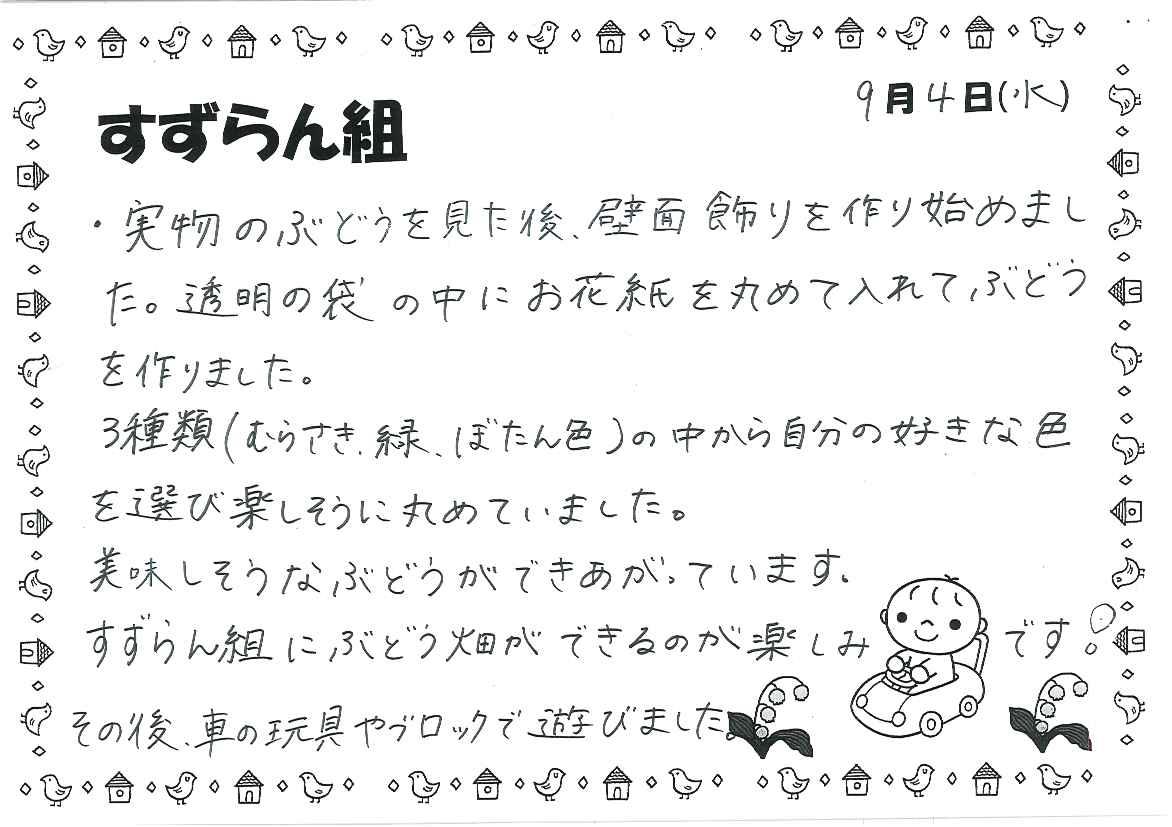 9月4日(水)
すずらん組
・実物のぶどうを見た後、壁面飾りを作り始めまし
た。透明の袋の中にお花紙を丸めて入れて、ぶどう
を作りました。
3種類(むらさき、緑、ぼたん色)の中から自分の好きな色
を選び楽しそうに丸めていました。
美味しそうなぶどうができあがっています。
すずらん組にぶどう畑ができるのが楽しみです!
その後、車の玩具やブロックで遊びました。